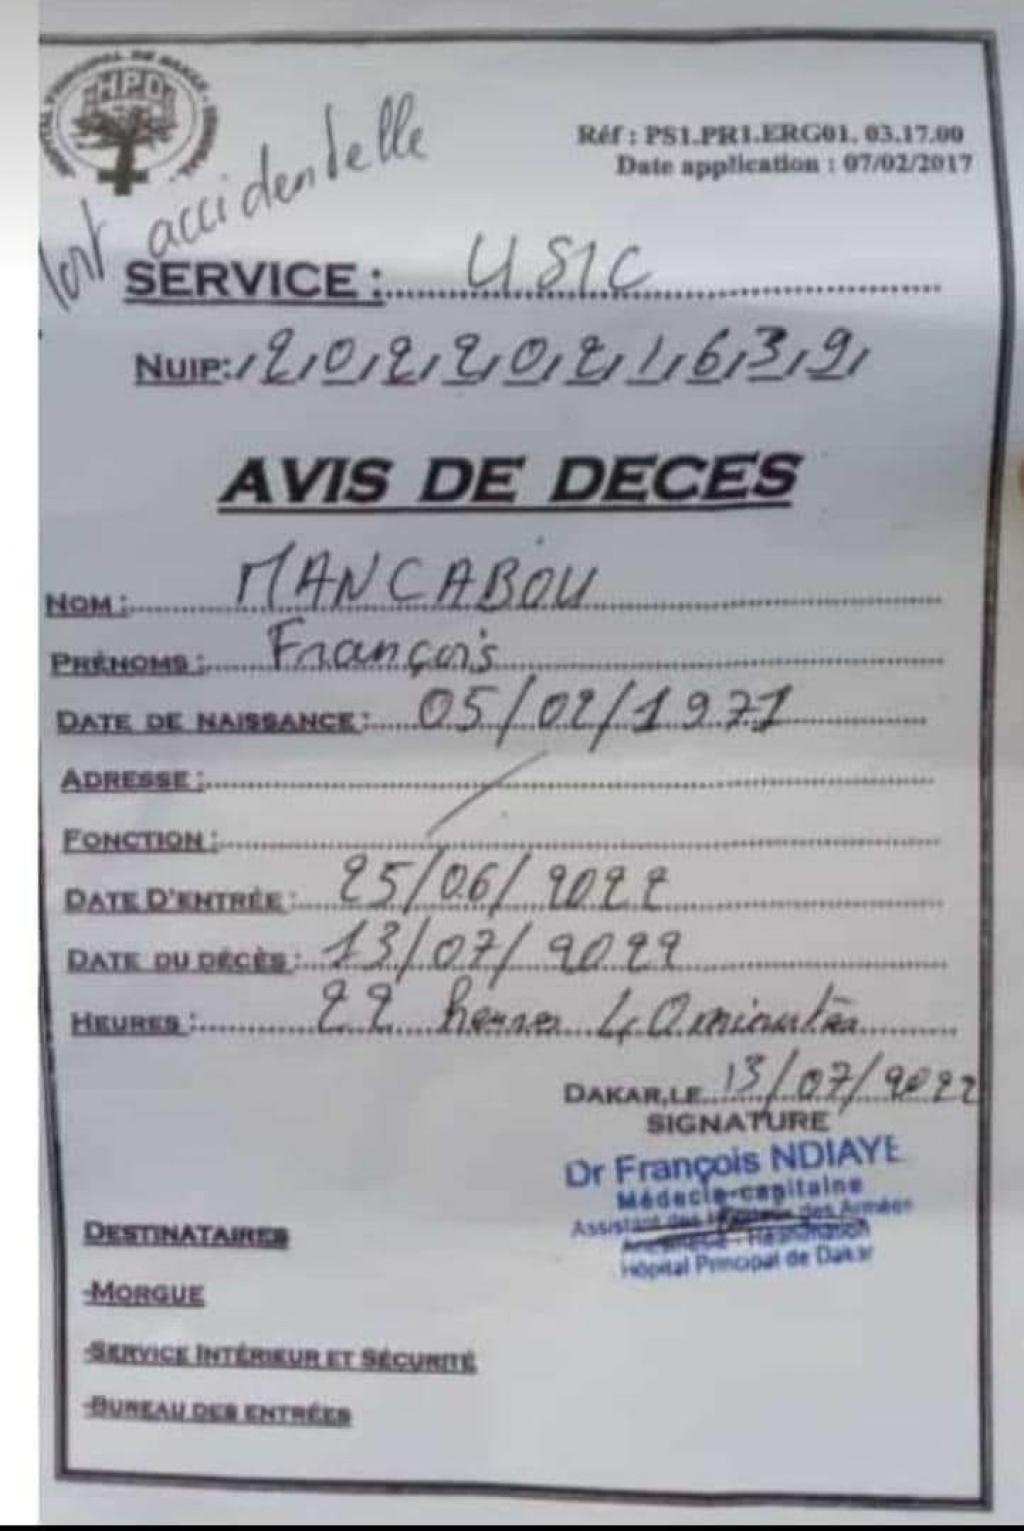 HOPITAL PRINCIPAL DE DAKAR - SENEGAL
HPD
Mort accidentelle
Réf : PS1.PR1.ERG01. 03.17.00
Date application : 07/02/2017
SERVICE : USIC
NUIP: 2 0 2 2 0 2 1 6 3 9
AVIS DE DECES
NOM : MANCABOU
PRÉNOMS : François
DATE DE NAISSANCE : 05/02/1971
ADRESSE :
FONCTION :
DATE D'ENTRÉE : 25/06/2022
DATE DU DÉCÈS : 13/07/2022
HEURES : 22 heures 40 minutes
DAKAR, LE 13/07/2022
SIGNATURE
Dr François NDIAYE
Médecin-capitaine
Assistant des Hôpitaux des Armées
Anesthésie - Réanimation
Hôpital Principal de Dakar
DESTINATAIRES
-MORGUE
-SERVICE INTÉRIEUR ET SÉCURITÉ
-BUREAU DES ENTRÉES